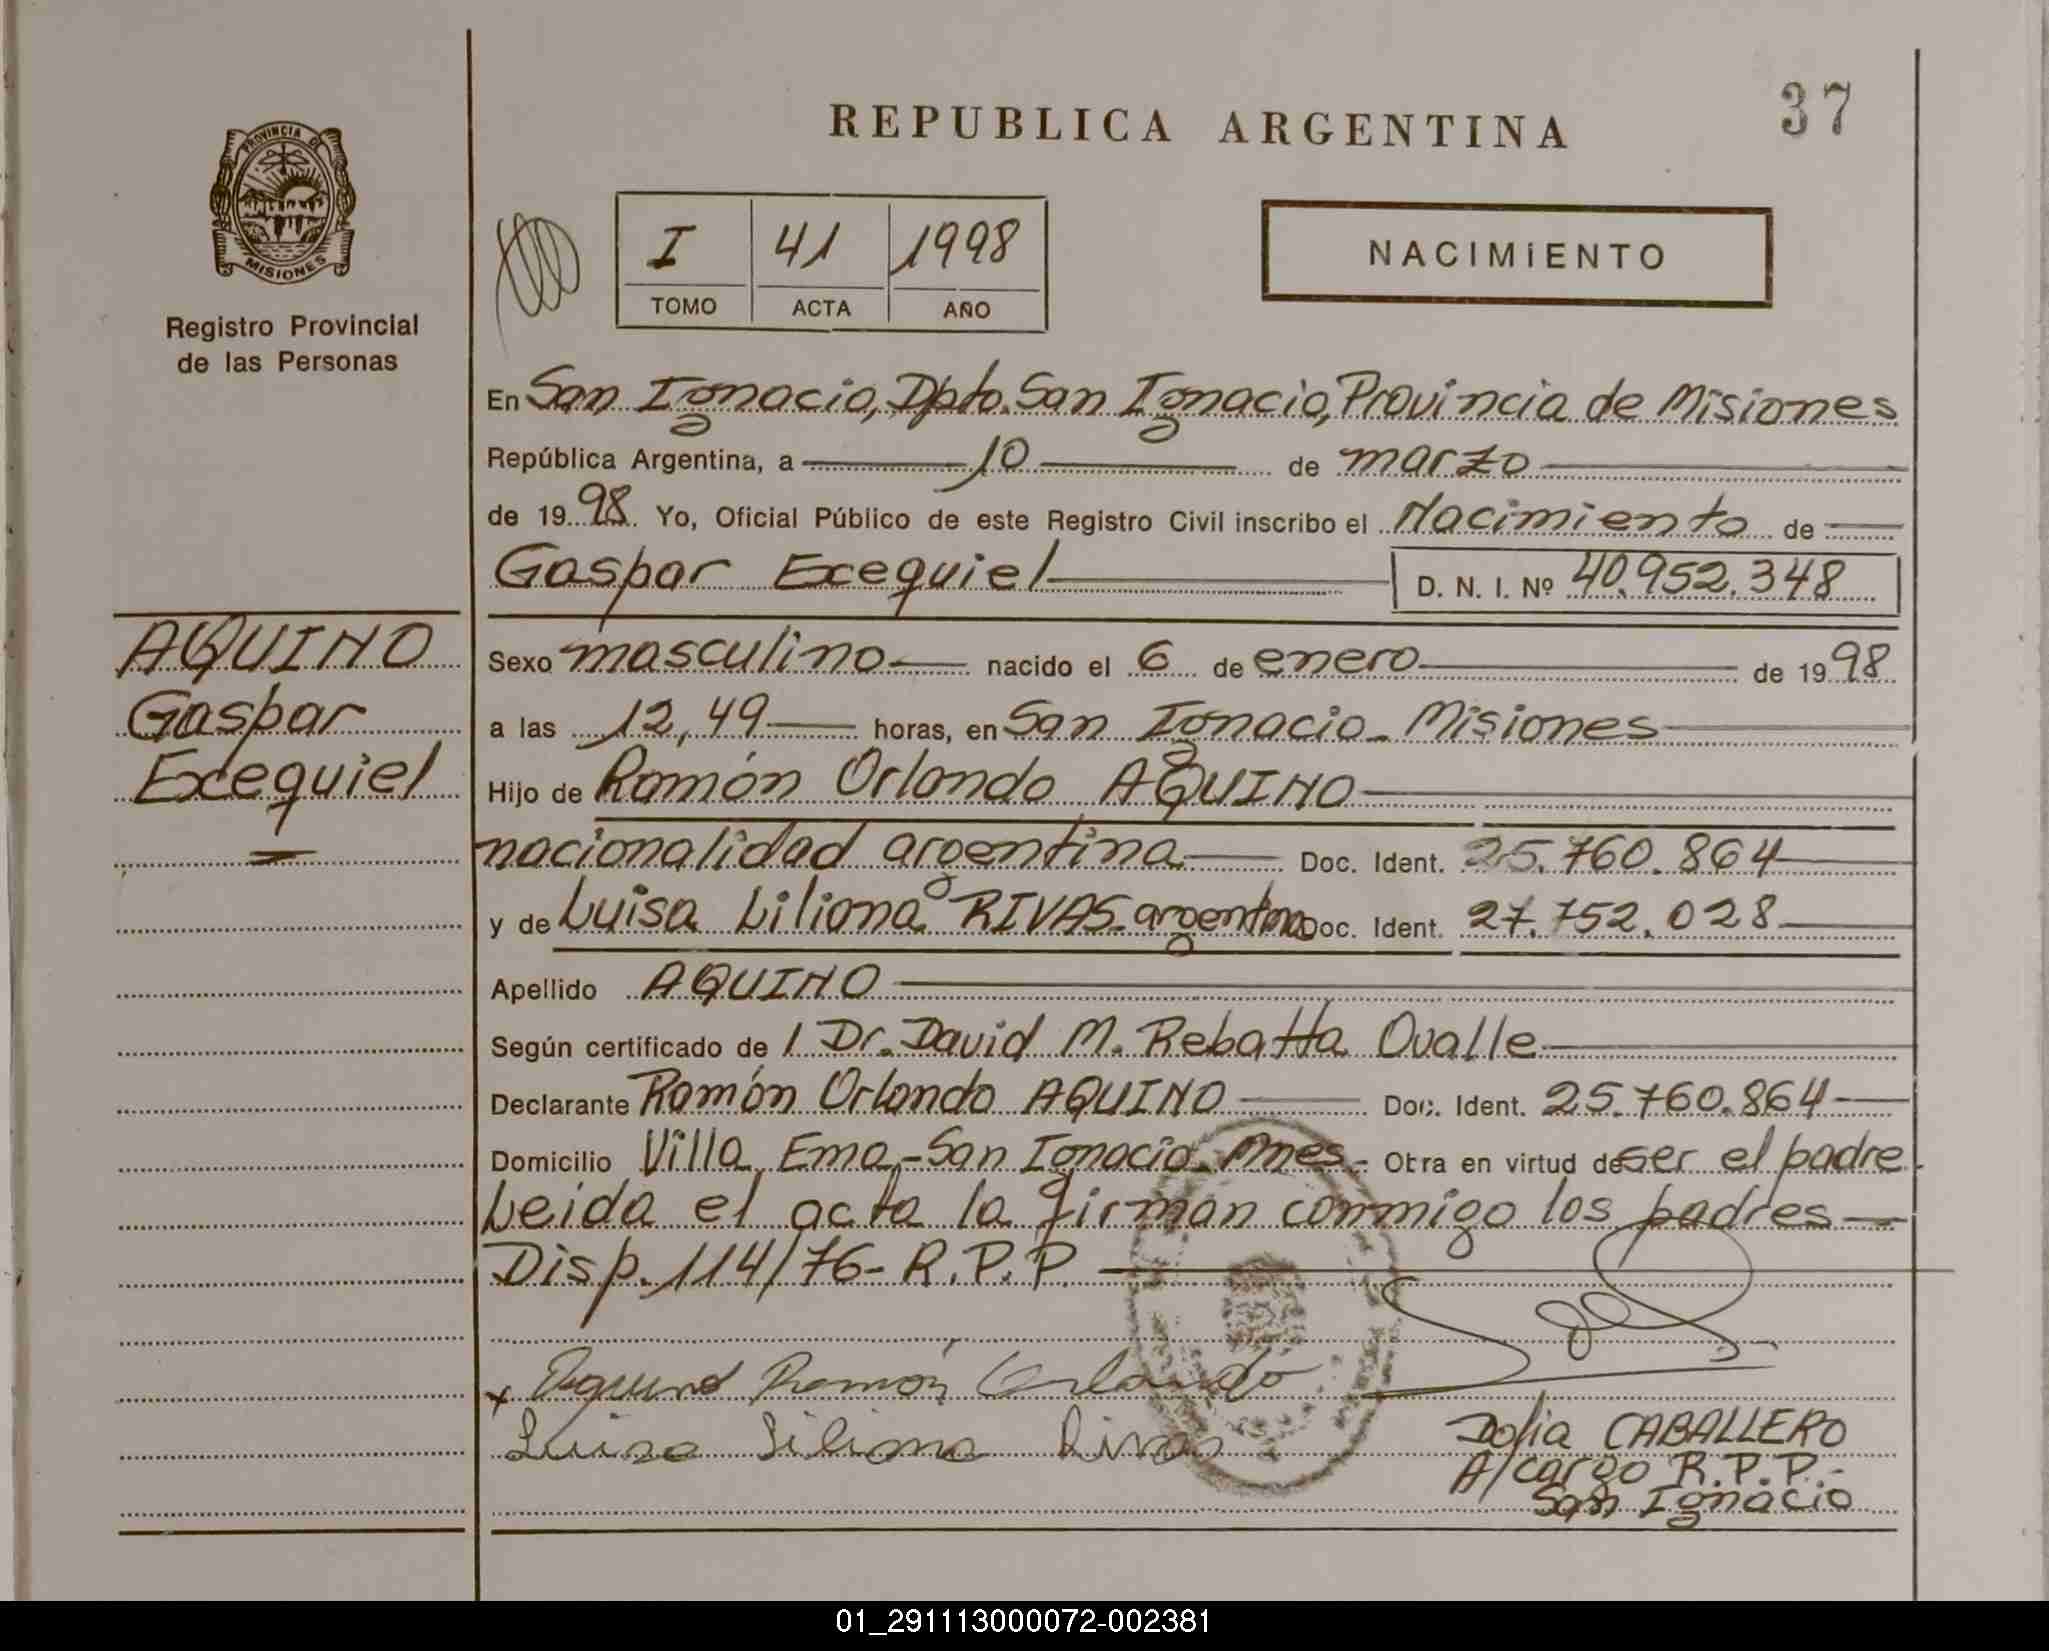 REPUBLICA ARGENTINA
37
PROVINCIA DE
MISIONES
Registro Provincial
de las Personas
I 41 1998
TOMO ACTA AÑO
NACIMIENTO
En San Ignacio, Dpto. San Ignacio, Provincia de Misiones
República Argentina, a 10 de marzo
de 1998. Yo, Oficial Público de este Registro Civil inscribo el Nacimiento de
Gaspar Exequiel D. N. I. Nº 40.952.348
AQUINO
Gaspar
Exequiel
Sexo masculino nacido el 6 de enero de 1998
a las 12,49 horas, en San Ignacio - Misiones
Hijo de Ramón Orlando AQUINO
nacionalidad argentina Doc. Ident. 25.760.864
y de Luisa Liliana RIVAS - argentina Doc. Ident. 27.752.028
Apellido AQUINO
Según certificado de l Dr. David M. Rebatta Ovalle
Declarante Ramón Orlando AQUINO Doc. Ident. 25.760.864
Domicilio Villa Ema - San Ignacio - Mnes.- Obra en virtud de ser el padre.
Leida el acta la firman conmigo los padres
Disp. 114/76 - R.P.P.
x Aquino Ramón Orlando
Luisa Liliana Rivas
CABALLERO
A/cargo R.P.P.-
San Ignacio
01_291113000072-002381